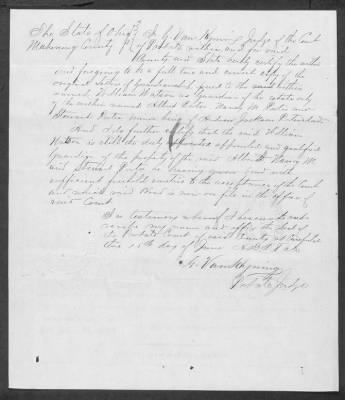 The State of Ohio } I G. Van Hyning Judge of the Court
Mahoning County } of Probate within and for said
County and State certify the within
and foregoing to be a full true and correct copy of the
original letters of Guardianship issued to the within
named William Watson as Guardian of the estate only
of the within named Albert Porter Henry M. Porter and
Stewart Porter minor heirs of Andrew Jackson Porter dec'd
And I do further certify that the said William
Watson is still the duly appointed and qualified
Guardian of the property of the said Albert Henry M.
and Stewart Porter having given good and
sufficient for the acceptance of the Court
and which said Bond is now on file in the office of
said Court.
In testimony whereof I hereunto sub-
scribe my name and affix the seal of
the Probate Court of said County at Canfield
this 15th day of June A.D.
G. Van Hyning
Probate Judge